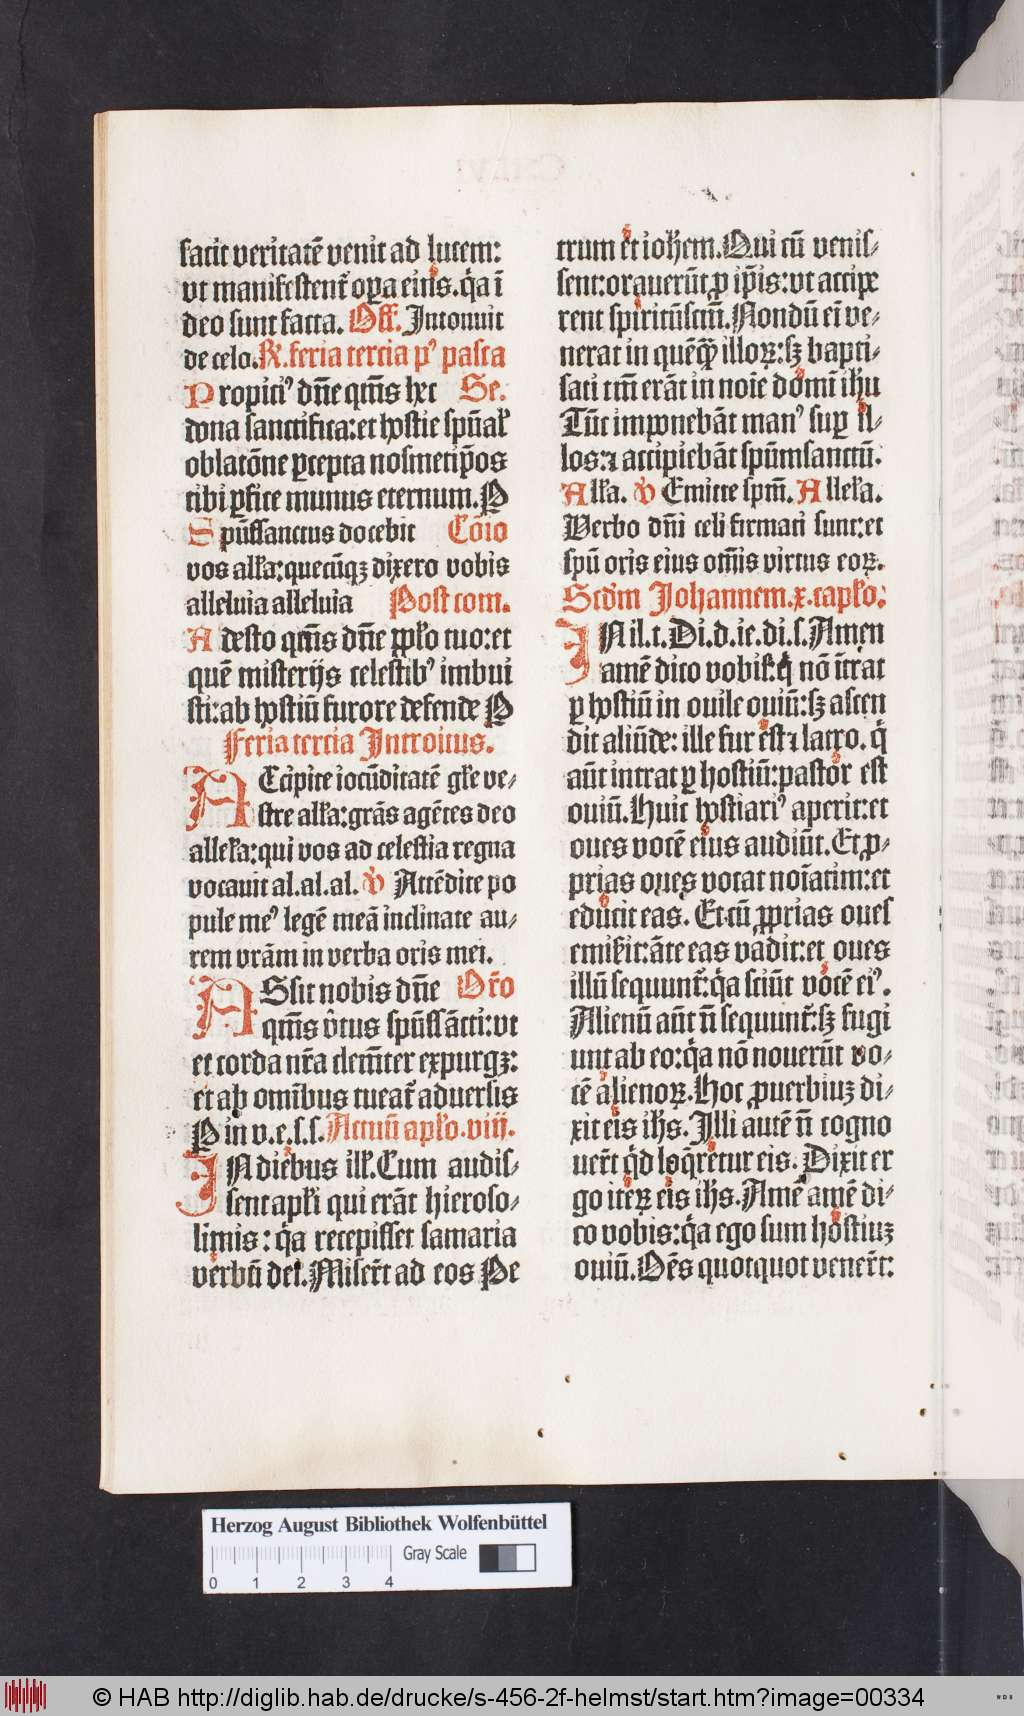 facit veritatē venit ad lucem:
vt manifestent᷑ oꝑa eius. q̄a ī
deo sunt facta. Off. Intonuit
de celo. R. feria tercia pꝰ pasca
Propiciꝰ dn̄e qm̄s hec Se.
dona sanctifica: et hostie spūal̛
oblatōne ꝑcepta nosmetip̄os
tibi ꝑfice munus eternum. P
Spūssanctus docebit Cōio
vos all̛a: quecūqꝫ dixero vobis
alleluia alleluia Post com.
Adesto qm̄s dn̄e ꝓpl̛o tuo: et
quē misterijs celestibꝰ imbui
sti: ab hostiū furore defende P
Feria tercia Introitus.
ACcipite iocūditatē gl̛e ve-
stre all̛a: grās agētes deo
allel̛a: qui vos ad celestia regna
vocauit al. al. al. V Attēdite po
pule meꝰ legē meā inclinate au-
rem vrām in verba oris mei.
ASsit nobis dn̄e Or̄o
qm̄s v̄tus spūssācti: vt
et corda nr̄a clem̄ter expurgꝫ:
et ab omībus tueat᷑ aduersis
P in v. e. s. s. Actuū apl̛o. viij.
IN diebus ill̛. Cum audis-
sent apl̛i qui erāt hieroso-
limis: q̄a recepisset samaria
verbū dei. Miser̄t ad eos Pe
trum et ioh̄em. Qui cū venis-
sent: orauerūt ꝓ ip̄is: vt accipe
rent spiritūsctm̄. Nondū ei̅ ve-
nerat in quēqꝫ̄ illoꝝ: sꝫ bapti-
sati tm̄ erāt in noīe domī ih̄u
Tūc imponebāt manꝰ suꝑ il-
los: ⁊ accipiebāt spūmsanctū.
All̛a. V Emitte spm̄. Allel̛a.
Verbo dn̄i celi firmati sunt: et
spū oris eius om̄is virtus eoꝝ.
Scd̛m Johannem. x. capl̛o:
IN il. t. Di. d. ie. di. s. Amen
amē dico vobis: q̄ nō īt̄rat
ꝑ hostiū in ouile ouiū: sꝫ ascen
dit aliūde: ille fur est ⁊ latro. q̄
aūt intrat ꝑ hostiū: pastor est
ouiū. Huic hostiariꝰ aperit: et
oues vocē eius audiūt. Et ꝓ-
prias oues vocat noīatim: et
educit eas. Et cū ꝓprias oues
emis̛it: āte eas vadit: et oues
illū sequunt᷑: q̄a sciūt vocē eiꝰ.
Alienū aūt n̄ sequunt᷑: sꝫ fugi
unt ab eo: q̄a nō nouerūt vo-
cē alienoꝝ. Hoc ꝓuerbiuꝫ di-
xit eis ih̄s. Illi autē n̄ cogno
uer̄t q̄d loq̄retur eis. Dixit er
go iteꝝ eis ih̄s. Amē amē di-
co vobis: q̄a ego sum hostiuꝫ
ouiū. Om̄s quotquot vener̄t:
Herzog August Bibliothek Wolfenbüttel
Gray Scale
0 1 2 3 4
© HAB http://diglib.hab.de/drucke/s-456-2f-helmst/start.htm?image=00334